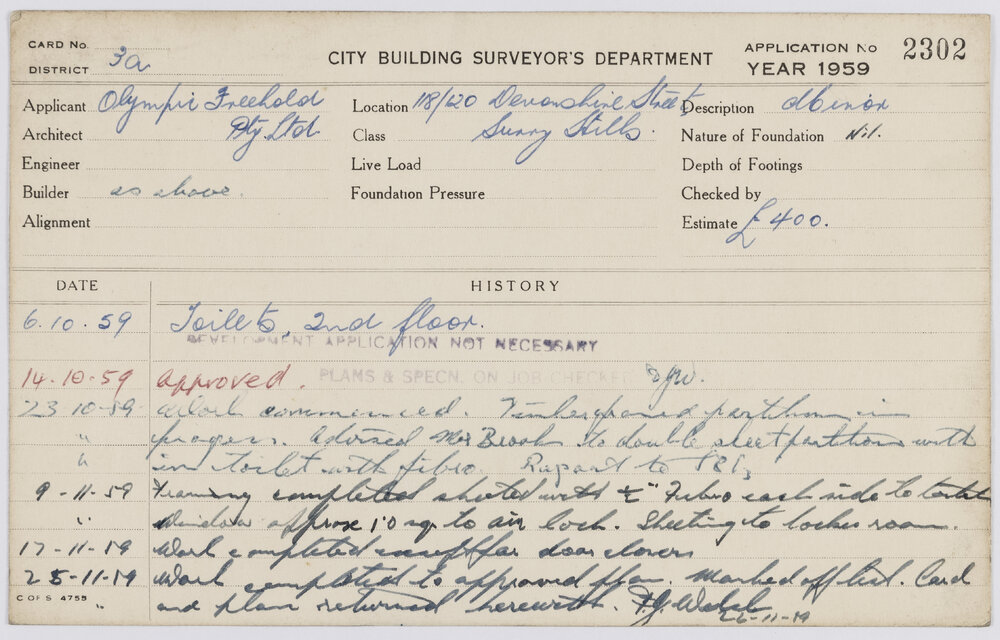 CARD No.
DISTRICT 3a
CITY BUILDING SURVEYOR'S DEPARTMENT
APPLICATION No 2302
YEAR 1959
Applicant Olympic Freehold
Pty Ltd
Location 118/120 Devonshire Street
Surry Hills.
Description Minor
Architect
Class
Nature of Foundation Nil.
Engineer
Live Load
Depth of Footings
Builder as above.
Foundation Pressure
Checked by
Alignment
Estimate £400.
DATE HISTORY
6.10.59 Toilets, 2nd floor.
DEVELOPMENT APPLICATION NOT NECESSARY
14-10-59 Approved. PLANS & SPECN. ON JOB CHECKED
23-10-59 Work commenced. Timber framed partition in
" progress. Advised Mr Brooks to double sheet partitions with
" in toilet with fibro. Report to
9-11-59 Framing completed sheeted with ½" Fibro each side to toilet
" Window approx 10 sq to air lock. Sheeting to locker room.
17-11-59 Work completed except for door closers
25-11-59 Work completed to approved plan. Marked off list. Card
" and plan returned herewith. F.J. Walsh
26-11-59
C OF S 4755